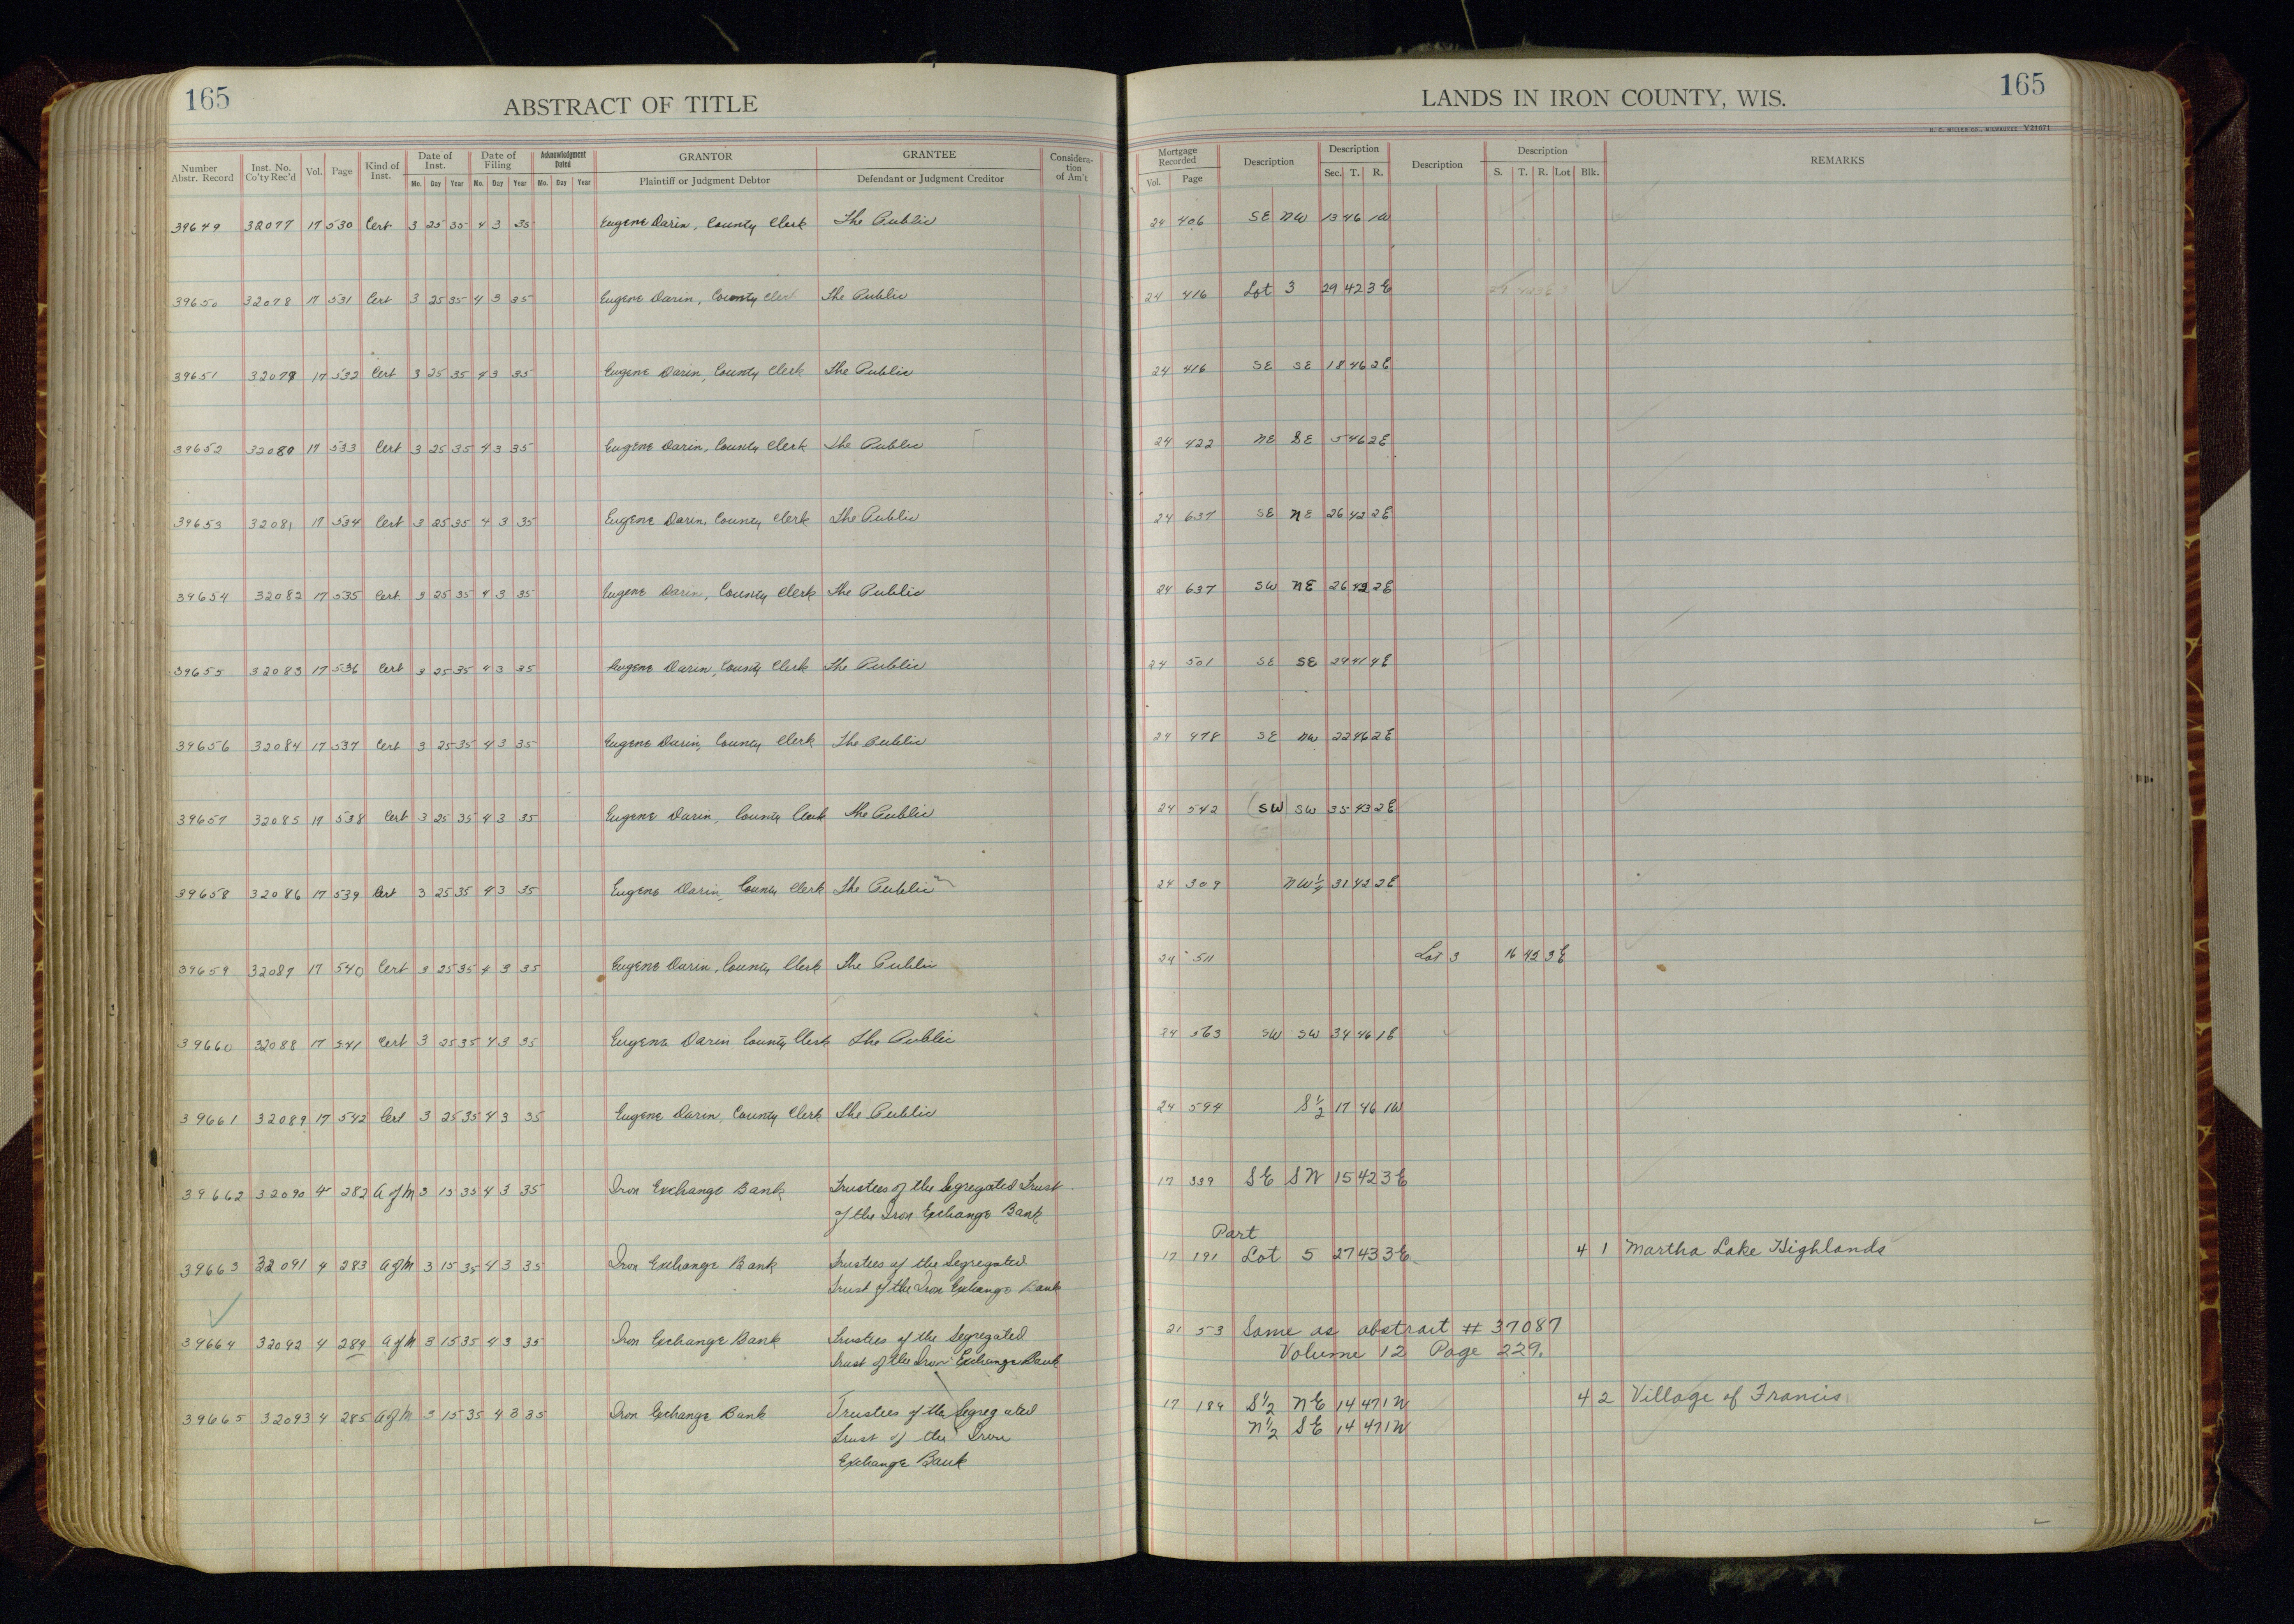 165
ABSTRACT OF TITLE
LANDS IN IRON COUNTY, WIS.
165
Number Abstr. Record | Inst. No. Co'ty Rec'd | Vol. | Page | Kind of Inst. | Date of Inst. Mo. Day Year | Date of Filing Mo. Day Year | Acknowledgment Dated Mo. Day Year | GRANTOR Plaintiff or Judgment Debtor | GRANTEE Defendant or Judgment Creditor | Consideration of Am't | Mortgage Recorded Vol. Page | Description | Description Sec. T. R. | Description | Description S. T. R. Lot Blk. | REMARKS
39649 32077 17 530 Cert 3 25 35 4 3 35 Eugene Darin, County Clerk The Public 24 406 SE NW 13 46 1W
39650 32078 17 531 Cert 3 25 35 4 3 35 Eugene Darin, County Clerk The Public 24 416 Lot 3 29 42 3E
39651 32079 17 532 Cert 3 25 35 4 3 35 Eugene Darin, County Clerk The Public 24 416 SE SE 18 46 2E
39652 32080 17 533 Cert 3 25 35 4 3 35 Eugene Darin, County Clerk The Public 24 422 NE SE 5 46 2E
39653 32081 17 534 Cert 3 25 35 4 3 35 Eugene Darin, County Clerk The Public 24 637 SE NE 26 42 2E
39654 32082 17 535 Cert 3 25 35 4 3 35 Eugene Darin, County Clerk The Public 24 637 SW NE 26 42 2E
39655 32083 17 536 Cert 3 25 35 4 3 35 Eugene Darin, County Clerk The Public 24 501 SE SE 29 41 4E
39656 32084 17 537 Cert 3 25 35 4 3 35 Eugene Darin, County Clerk The Public 24 478 SE NW 22 46 2E
39657 32085 17 538 Cert 3 25 35 4 3 35 Eugene Darin, County Clerk The Public 24 542 (SW SW 35 43 2E
39658 32086 17 539 Cert 3 25 35 4 3 35 Eugene Darin, County Clerk The Public 24 309 NW¼ 31 42 2E
39659 32087 17 540 Cert 3 25 35 4 3 35 Eugene Darin, County Clerk The Public 24 511 Lot 3 16 42 3E
39660 32088 17 541 Cert 3 25 35 4 3 35 Eugene Darin County Clerk The Public 24 563 SW SW 34 46 1E
39661 32089 17 542 Cert 3 25 35 4 3 35 Eugene Darin, County Clerk The Public 24 594 S½ 17 46 1W
39662 32090 4 282 A of M 3 15 35 4 3 35 Iron Exchange Bank Trustees of the Segregated Trust 17 339 SE SW 15 42 3E
of the Iron Exchange Bank
Part
39663 32091 4 283 A of M 3 15 35 4 3 35 Iron Exchange Bank Trustees of the Segregated 17 191 Lot 5 27 43 3E 4 1 Martha Lake Highlands
Trust of the Iron Exchange Bank
39664 32092 4 284 A of M 3 15 35 4 3 35 Iron Exchange Bank Trustees of the Segregated 21 53 Same as abstract # 37087
Trust of the Iron Exchange Bank Volume 12 Page 229.
39665 32093 4 285 A of M 3 15 35 4 3 35 Iron Exchange Bank Trustees of the Segregated 17 189 S½ NE 14 47 1W 4 2 Village of Francis
Trust of the Iron N½ SE 14 47 1W
Exchange Bank